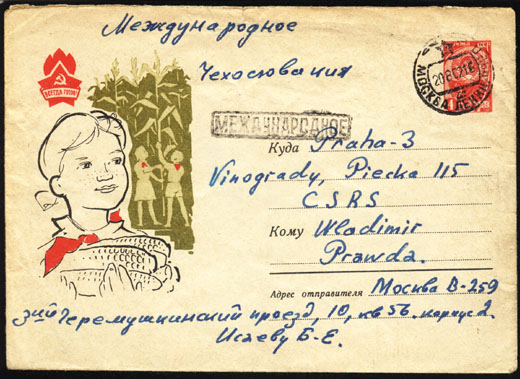 Международное
Чехословакия
ВСЕГДА ГОТОВ!
МЕЖДУНАРОДНОЕ
МОСКВА
Куда Praha-3
Vinogrady, Piecka 115
CSRS
Кому Wladimir
Prawda.
Адрес отправителя Москва В-259
3ий Черемушкинский проезд, 10, кв 56. корпус 2.
Исаеву Б-Е.